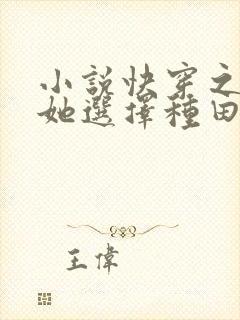 小說快穿之
她選擇種田
王偉